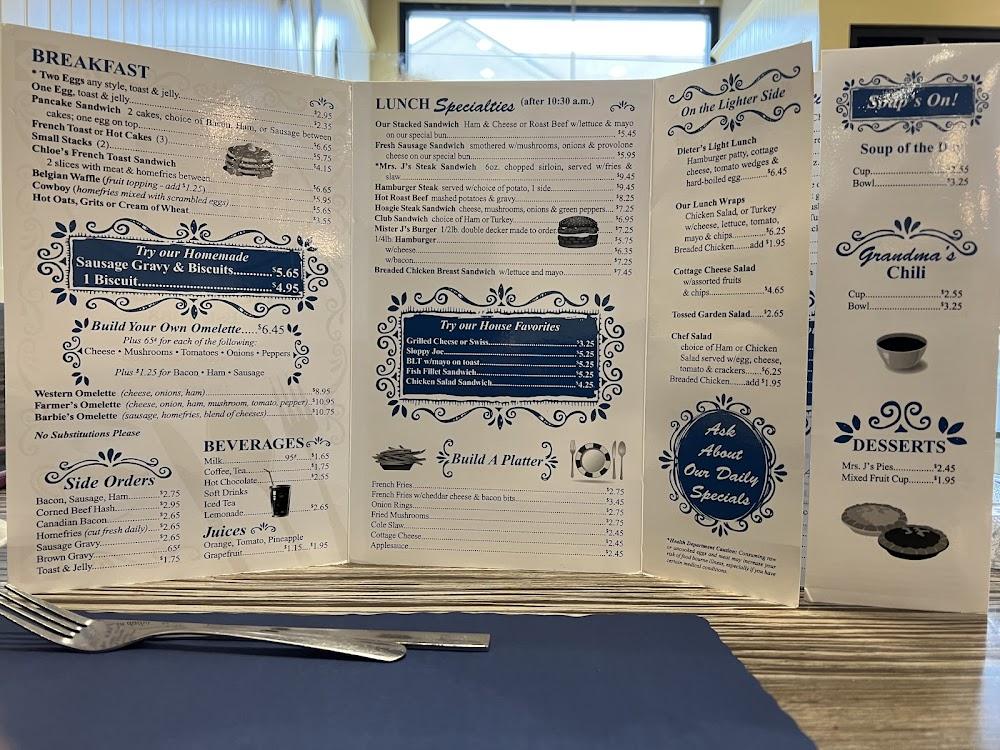 BREAKFAST
* Two Eggs any style, toast & jelly.....$2.95
One Egg, toast & jelly.....$2.35
Pancake Sandwich 2 cakes, choice of Bacon, Ham, or Sausage between
cakes; one egg on top.....$6.65
French Toast or Hot Cakes (3).....$5.75
Small Stacks (2).....$4.15
Chloe's French Toast Sandwich
2 slices with meat & homefries between.....$6.65
Belgian Waffle (fruit topping - add $1.25).....$5.95
Cowboy (homefries mixed with scrambled eggs).....$5.65
Hot Oats, Grits or Cream of Wheat.....$3.55
Try our Homemade
Sausage Gravy & Biscuits.....$5.65
1 Biscuit.....$4.95
Build Your Own Omelette.....$6.45
Plus 65¢ for each of the following:
Cheese • Mushrooms • Tomatoes • Onions • Peppers
Plus $1.25 for Bacon • Ham • Sausage
Western Omelette (cheese, onions, ham).....$8.95
Farmer's Omelette (cheese, onion, ham, mushroom, tomato, pepper).$10.95
Barbie's Omelette (sausage, homefries, blend of cheeses).....$10.75
No Substitutions Please
Side Orders
Bacon, Sausage, Ham.....$2.75
Corned Beef Hash.....$2.95
Canadian Bacon.....$2.65
Homefries (cut fresh daily).....$2.65
Sausage Gravy.....$2.65
Brown Gravy.....65¢
Toast & Jelly.....$1.75
BEVERAGES
Milk.....95¢.....$1.65
Coffee, Tea.....$1.75
Hot Chocolate.....$2.55
Soft Drinks
Iced Tea
Lemonade.....$2.65
Juices
Orange, Tomato, Pineapple
Grapefruit.....$1.15...$1.95
LUNCH Specialties (after 10:30 a.m.)
Our Stacked Sandwich Ham & Cheese or Roast Beef w/lettuce & mayo
on our special bun.....$5.45
Fresh Sausage Sandwich smothered w/mushrooms, onions & provolone
cheese on our special bun.....$5.95
*Mrs. J's Steak Sandwich 6oz. chopped sirloin, served w/fries &
slaw.....$9.45
Hamburger Steak served w/choice of potato, 1 side.....$9.45
Hot Roast Beef mashed potatoes & gravy.....$8.25
Hoagie Steak Sandwich cheese, mushrooms, onions & green peppers....$7.25
Club Sandwich choice of Ham or Turkey.....$6.95
Mister J's Burger 1/2lb. double decker made to order.....$7.25
1/4lb. Hamburger.....$5.75
w/cheese.....$6.35
w/bacon.....$7.25
Breaded Chicken Breast Sandwich w/lettuce and mayo.....$7.45
Try our House Favorites
Grilled Cheese or Swiss.....$3.25
Sloppy Joe.....$5.25
BLT w/mayo on toast.....$5.25
Fish Fillet Sandwich.....$5.25
Chicken Salad Sandwich.....$4.25
Build A Platter
French Fries.....$2.75
French Fries w/cheddar cheese & bacon bits.....$3.45
Onion Rings.....$2.75
Fried Mushrooms.....$2.75
Cole Slaw.....$2.45
Cottage Cheese.....$2.45
Applesauce.....$2.45
On the Lighter Side
Dieter's Light Lunch
Hamburger patty, cottage
cheese, tomato wedges &
hard-boiled egg.....$6.45
Our Lunch Wraps
Chicken Salad, or Turkey
w/cheese, lettuce, tomato,
mayo & chips.....$6.25
Breaded Chicken.....add $1.95
Cottage Cheese Salad
w/assorted fruits
& chips.....$4.65
Tossed Garden Salad.....$2.65
Chef Salad
choice of Ham or Chicken
Salad served w/egg, cheese,
tomato & crackers.....$6.25
Breaded Chicken.....add $1.95
Ask
About
Our Daily
Specials
*Health Department Caution: Consuming raw
or uncooked eggs and meat may increase your
risk of food bourne illness, especially if you have
certain medical conditions.
Soup's On!
Soup of the Day
Cup.....$2.55
Bowl.....$3.25
Grandma's
Chili
Cup.....$2.55
Bowl.....$3.25
DESSERTS
Mrs. J's Pies.....$2.45
Mixed Fruit Cup.....$1.95